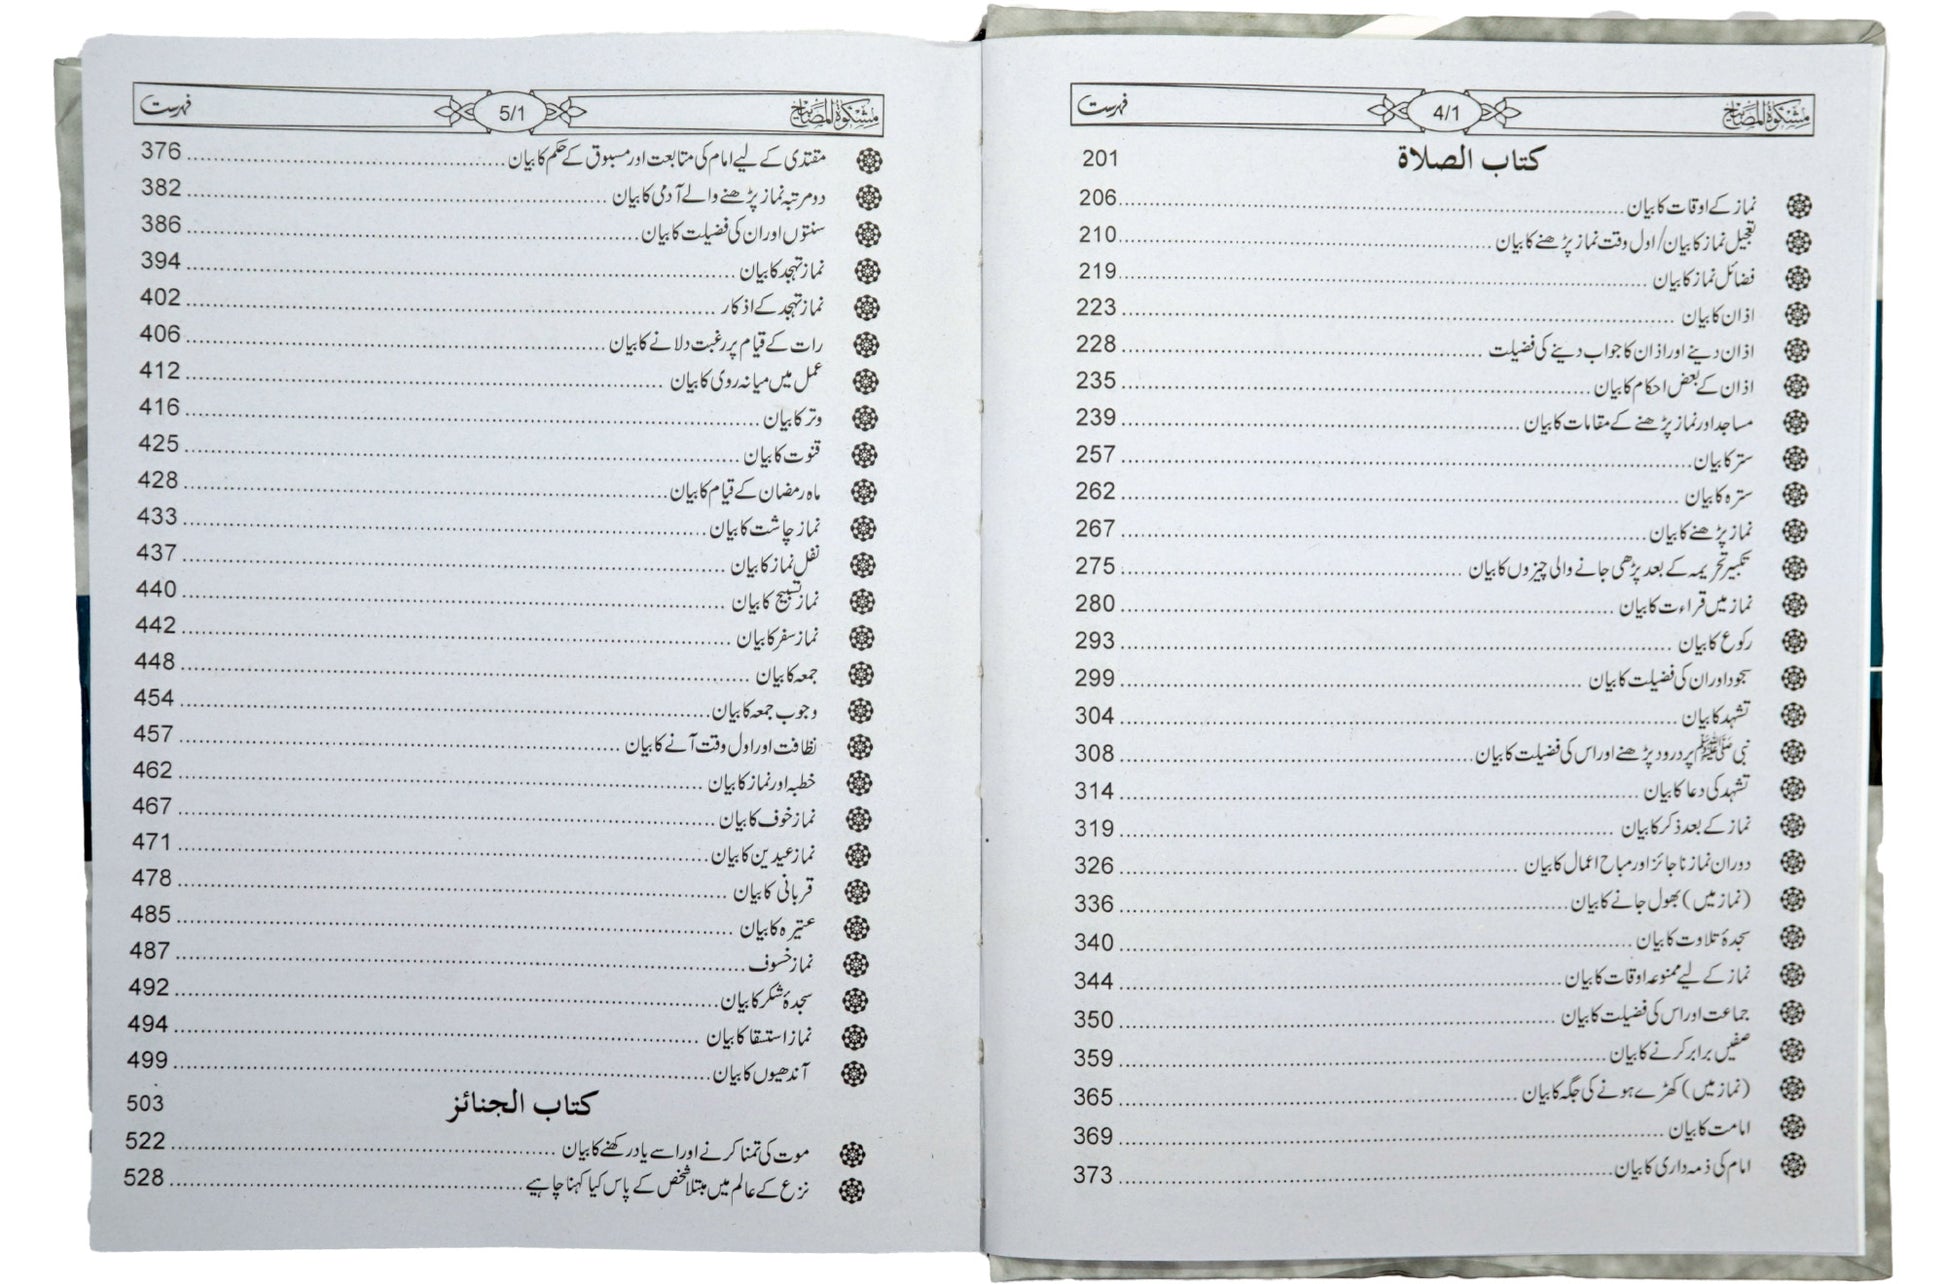 مشکوٰۃ المصابیح 4/1 فہرست
کتاب الصلاة 201
نماز کے اوقات کا بیان 206
تعجیل نماز کا بیان/اول وقت نماز پڑھنے کا بیان 210
فضائل نماز کا بیان 219
اذان کا بیان 223
اذان دینے اور اذان کا جواب دینے کی فضیلت 228
اذان کے بعض احکام کا بیان 235
مساجد اور نماز پڑھنے کے مقامات کا بیان 239
ستر کا بیان 257
سترہ کا بیان 262
نماز پڑھنے کا بیان 267
تکبیر تحریمہ کے بعد پڑھی جانے والی چیزوں کا بیان 275
نماز میں قراءت کا بیان 280
رکوع کا بیان 293
سجود اور ان کی فضیلت کا بیان 299
تشہد کا بیان 304
نبی ﷺ پر درود پڑھنے اور اس کی فضیلت کا بیان 308
تشہد کی دعا کا بیان 314
نماز کے بعد ذکر کا بیان 319
دوران نماز نا جائز اور مباح اعمال کا بیان 326
(نماز میں) بھول جانے کا بیان 336
سجدۂ تلاوت کا بیان 340
نماز کے لیے ممنوعہ اوقات کا بیان 344
جماعت اور اس کی فضیلت کا بیان 350
صفیں برابر کرنے کا بیان 359
(نماز میں) کھڑے ہونے کی جگہ کا بیان 365
امامت کا بیان 369
امام کی ذمہ داری کا بیان 373
مشکوٰۃ المصابیح 5/1 فہرست
مقتدی کے لیے امام کی متابعت اور مسبوق کے حکم کا بیان 376
دو مرتبہ نماز پڑھنے والے آدمی کا بیان 382
سنتوں اور ان کی فضیلت کا بیان 386
نماز تہجد کا بیان 394
نماز تہجد کے اذکار 402
رات کے قیام پر رغبت دلانے کا بیان 406
عمل میں میانہ روی کا بیان 412
وتر کا بیان 416
قنوت کا بیان 425
ماہ رمضان کے قیام کا بیان 428
نماز چاشت کا بیان 433
نفل نماز کا بیان 437
نماز تسبیح کا بیان 440
نماز سفر کا بیان 442
جمعہ کا بیان 448
وجوب جمعہ کا بیان 454
نظافت اور اول وقت آنے کا بیان 457
خطبہ اور نماز کا بیان 462
نماز خوف کا بیان 467
نماز عیدین کا بیان 471
قربانی کا بیان 478
عتیرہ کا بیان 485
نماز خسوف 487
سجدۂ شکر کا بیان 492
نماز استسقا کا بیان 494
آندھیوں کا بیان 499
کتاب الجنائز 503
موت کی تمنا کرنے اور اسے یاد رکھنے کا بیان 522
نزع کے عالم میں مبتلا شخص کے پاس کیا کہنا چاہیے 528